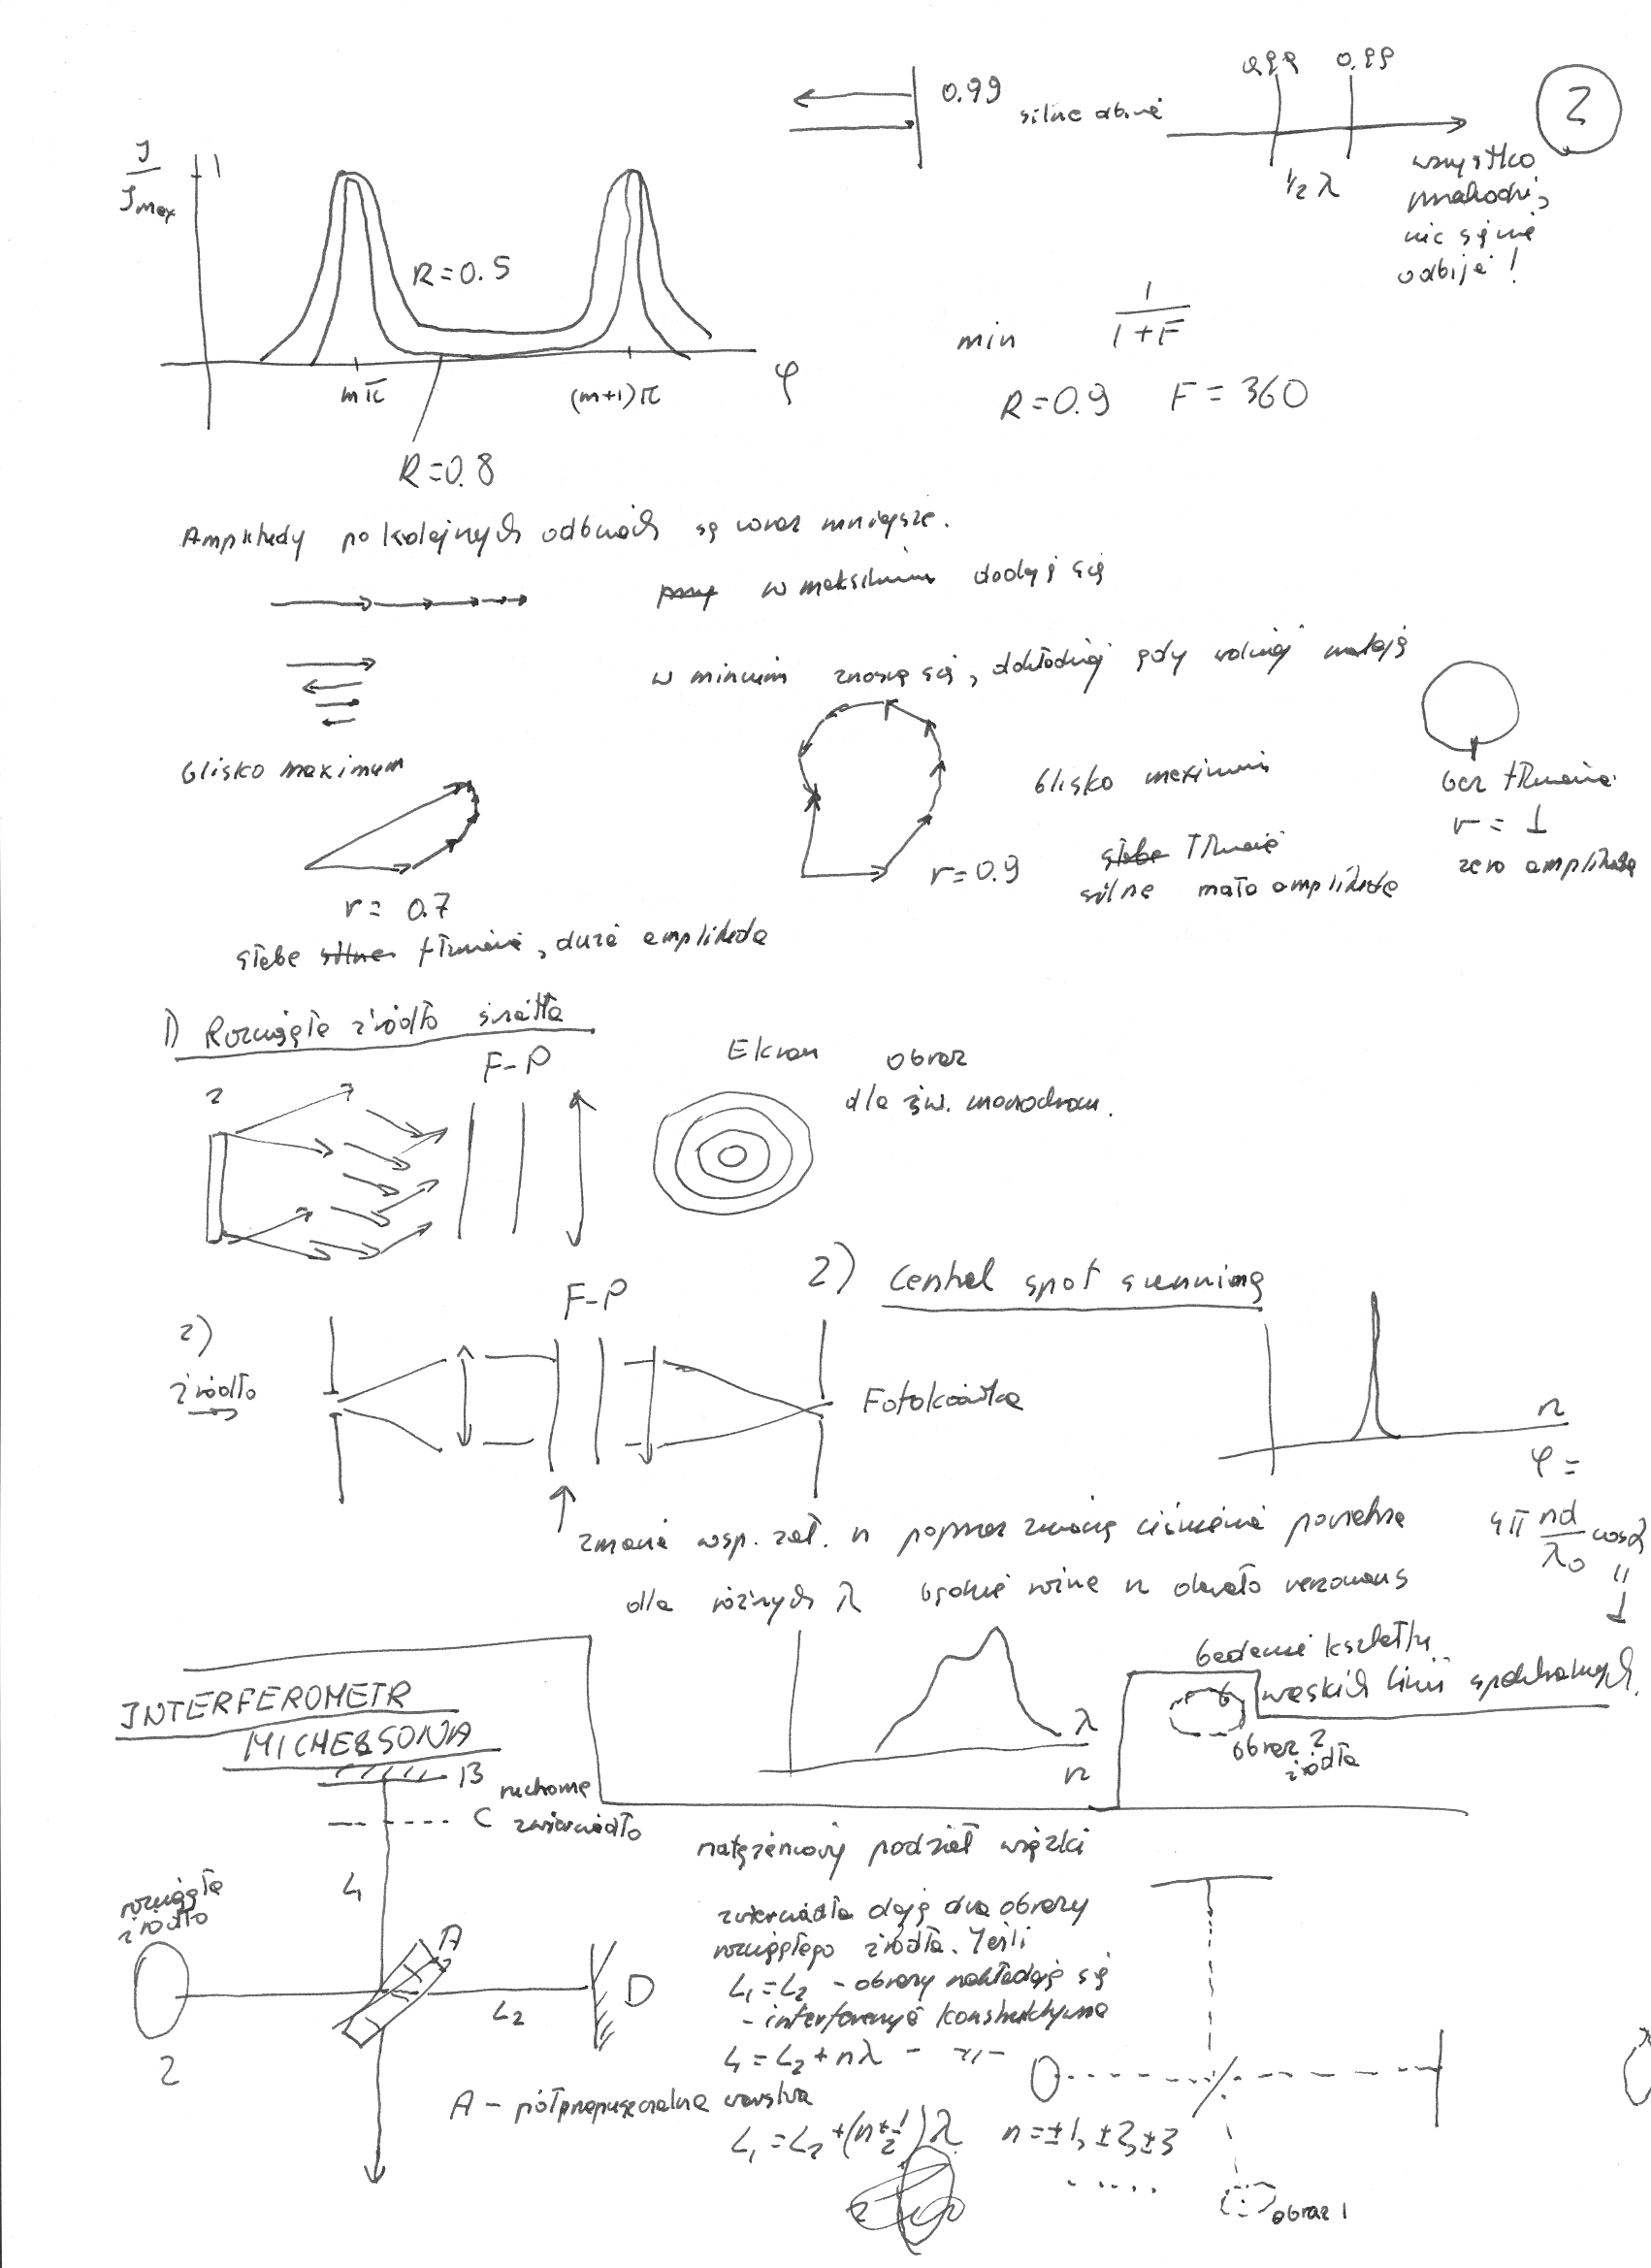 0.99 silne odbicie
0.99 0.99
2
½ λ
wszystko
przechodzi,
nic się nie
odbija!
J
Jmax
1
R=0.5
mπ
(m+1)π
φ
R=0.8
min 1
1+F
R=0.9 F = 360
Amplitudy po kolejnych odbiciach są coraz mniejsze.
w maksimum dodają się
w minimum znoszą się, dokładniej gdy wolniej maleją
blisko maximum
r = 0.7
słabe silne tłumienie, duża amplituda
blisko maximum
r=0.9
słabe tłumienie
silne mała amplituda
bez tłumienia
r = 1
zero amplituda
1) Rozciągłe źródło światła
F-P
Ekran obraz
dla św. monochrom.
2
2) Central spot scanning
2)
źródło
F-P
Fotokomórka
n
φ =
4π nd cosα
λ0
"
1
zmiana wsp. zał. n poprzez zmianę ciśnienia powietrza
dla różnych λ n około rezonans
badanie kształtu
wąskich linii spektralnych.
λ
n
obraz 2
źródła
INTERFEROMETR
MICHELSONA
B
ruchome
C zwierciadło
L1
rozciągłe
źródło
A
L2
D
2
A - półprzepuszczalna warstwa
natężeniowy podział wiązki
zwierciadła dają dwa obrazy
rozciągłego źródła. Jeśli
L1=L2 - obrazy nakładają się
- interferencja konstruktywna
L1=L2+nλ - -"-
L1=L2+(n+½)λ n=±1,±2,±3
.....
obraz 1